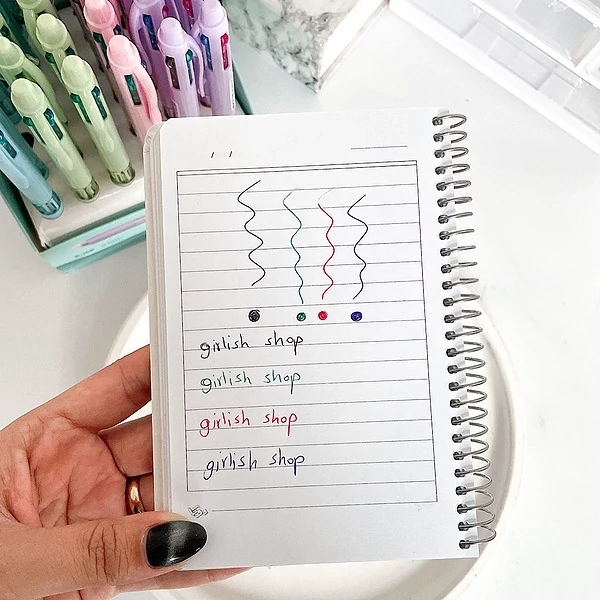 / /
girlish shop
girlish shop
girlish shop
girlish shop